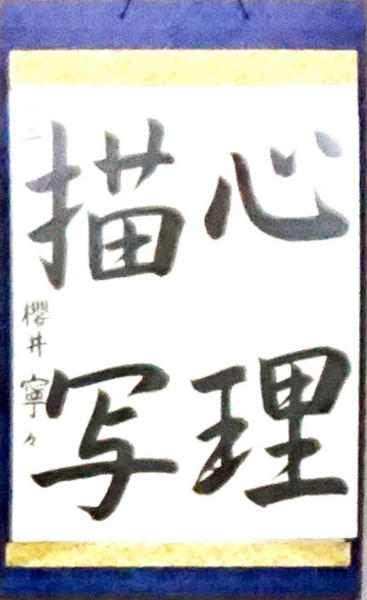 心理
描写
櫻井寧々